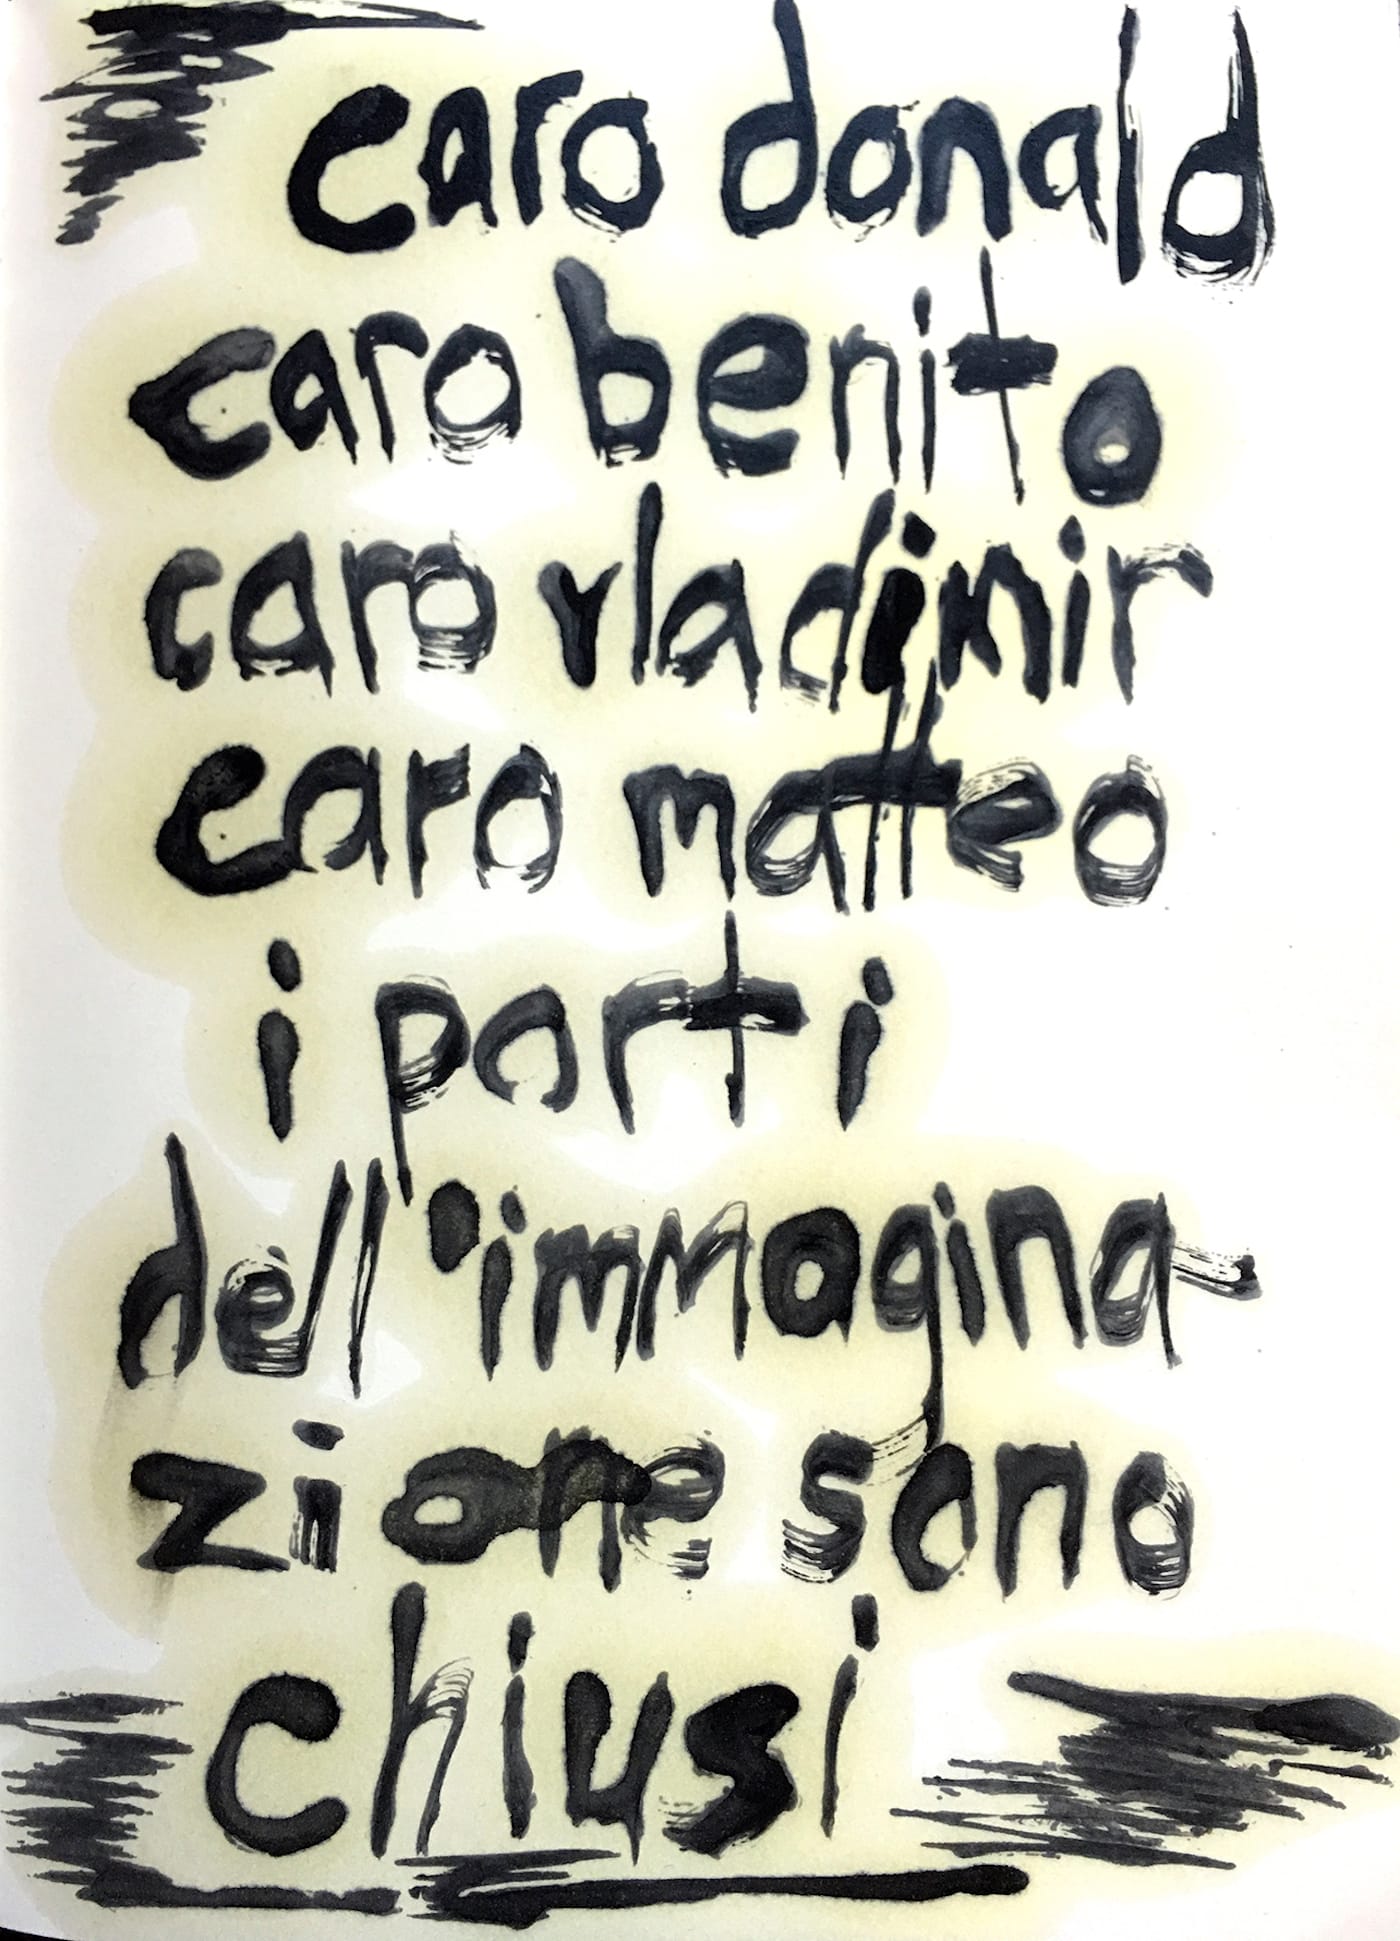 caro donald
caro benito
caro vladimir
caro matteo
i porti
dell'immagina-
zione sono
chiusi